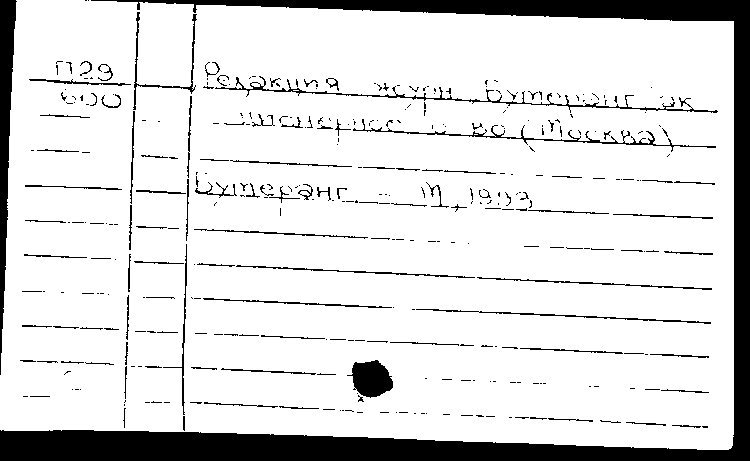 П29
600
Редакция журн. Бумеранг, ак
ционерное о-во (Москва)
Бумеранг. - М, 1993